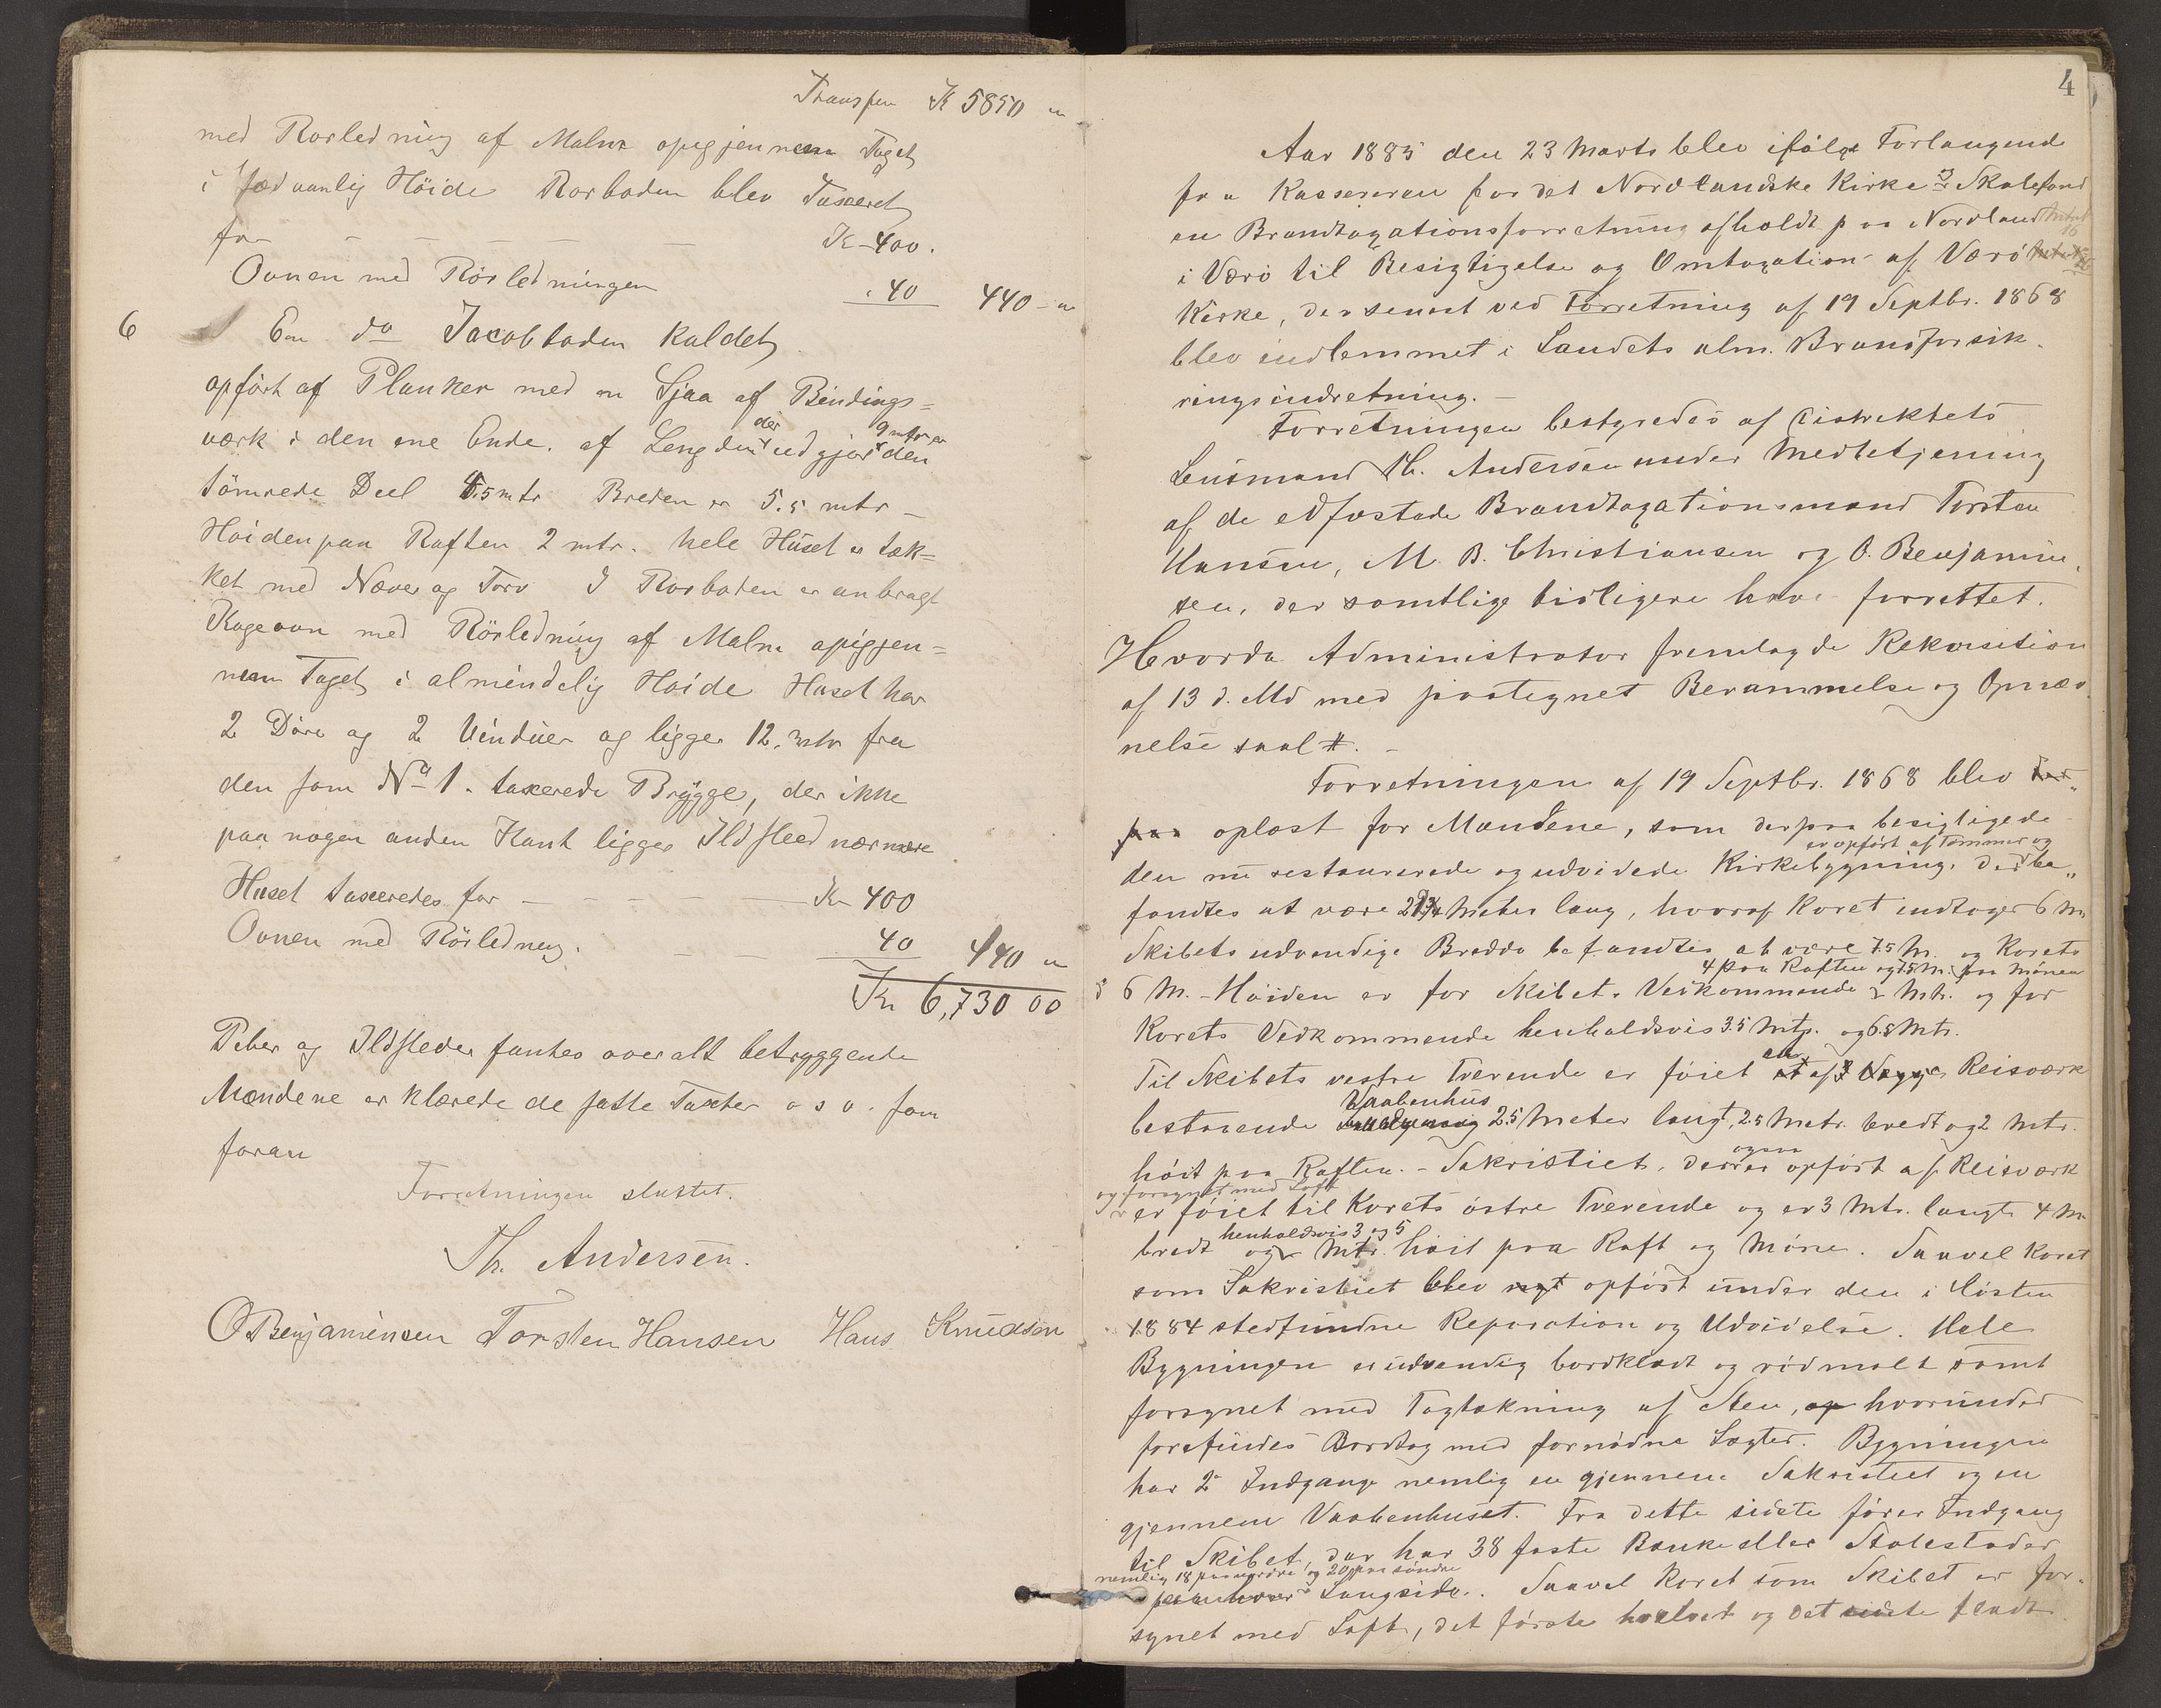 Transpor Kr 5850 "
med Rørledning af Malm opigjennem Taget
i sædvanlig Höide Rorboden blev Taxeret
for - - - - - Kr 400.
Ovnen med Rörledningen " 40 440 - "
6 En do Jacobboden kaldet
opfört af Planker med en Sjaa af Bindings=
værk i den ene Ende. af Lengden der udgjör 9 mtr er den
tömrede Deel 4.5 mtr Breden er 5.5 mtr -
Høiden paa Raften 2 mtr. hele Huset er tæk=
ket med Næver og Torv I Rorboden er anbragt
Kogeovn med Rörledning af Malm opigjen=
nem Taget i almindelig Høide Huset har
2 Döre og 2 Vinduer og ligger 12. mtr fra
den som No 1. taxerede Brygge, der ikke
paa nogen anden Kant ligger Ildsteed nærmere
Huset taxeredes for - - - - - Kr 400
Ovnen med Rörledning. - - 40 440 "
Kr 6,730 00
Piber og Ildsteder fantes overalt betryggende
Mændene erklærede de satte Taxter o s v. som
foran
Forretningen sluttet.
Th. Andersen.
OBenjaminsen Torsten Hansen Hans Knudsen
4
Aar 1885 den 23 Marts blev ifölge Forlangende
fra Kassereren for det Nordlandske Kirke og Skolefond
en Brandtaxationsforretning afholdt paa Nordland
i Værö til Besigtigelse og Omtaxation af Værö
Kirke, der senest ved Forretning af 19 Septbr. 1868
blev indlemmet i Landets alm. Brandforsik.
ringsindretning. -
Forretningen bestyredes af Distriktets
Lensmand Th. Andersen under Medbetjening
af de edfæstede Brandtaxationsmænd Torsten
Hansen, M. B. Christiansen og O. Benjamin,
sen, der samtlige tidligere have forrettet.
Hvorda Administrator fremlagde Rekvisition
af 13 d. Md med paategnet Berammelse og Opnæv
nelse saal #. -
Forretningen af 19 Septbr. 1868 blev
oplæst for Mændene, som derpaa besigtigede
den nu restaurerede og udvidede Kirkebygning. Der er opfört af Tömmer og be„
fandtes at være 21¾ Meter lang, hvoraf Koret indtager 6 M.
Skibets udvendige Bredde befandtes at være 7.5 M. og Korets
6 M. - Höiden er for Skibets Vedkommende 4 paa Raften og 7.5 M. paa Mönen Mtr. og for
Korets Vedkommende henholdsvis 3.5 Mtr. og 6.5 Mtr.
Til Skibets vestre Tverende er föiet et af Reisværk
bestaaende Vaabenhus 2.5 Meter langt, 2.5 Metr. bredt og 2 Mtr.
höit paa Raften. - Sakristiet, der er ogsaa opfört af Reisværk
og forsynet med Loft
er föiet til Korets östre Tverende og er 3 Mtr. langt 4 M
bredt og henholdsvis 3 og 5 Mtr. höit paa Raft og Möne. Saavel Koret
som Sakristiet blev nyt opfört under den i Hösten
1884 stedfundne Reparation og Udvidelse. Hele
Bygningen er udvendig bordklædt og rödmalt samt
forsynet med Tagtækning af Sten, og hvorunder
forefindes Bordtag med fornödne Lægter. Bygningen
har 2 Indgange nemlig en gjennem Sakristiet og en
gjennem Vaabenhuset. Fra dette sidste förer Indgang
til Skibet, der har 38 faste Bænke eller Stolestader
nemlig 18 paa nordre og 20 paa söndre
paa enhver Langside. Saavel Koret som Skibet er for-
synet med Loft, det förste hvælvet og det sidste fladt